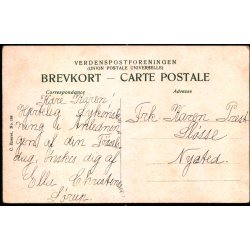 VERDENSPOSTFORENINGEN
(UNION POSTALE UNIVERSELLE)
BREVKORT – CARTE POSTALE
Correspondance
Adresse
Kære Karen!
Hjertelig Lykønsk-
ning i Anlednin-
gen af din Fødsels
dag, ønskes dig af
Ella Christensen
Frk Karen
Nysted